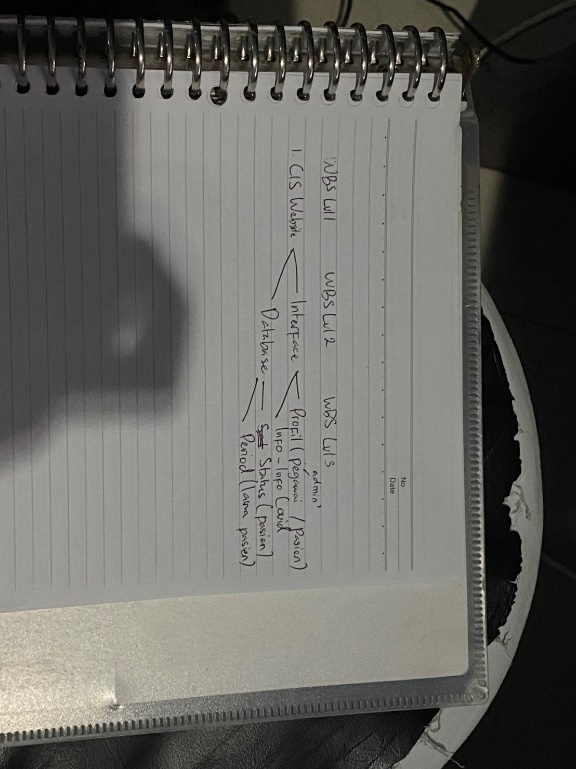 No
Date
WBS Lvl1 WBS Lvl 2 WBS Lvl 3
admin'
1 CIS Website Interface Profil (Pegawai / Pasien)
Info - Info Covid
Database Status (pasien)
Period (lama pasien)